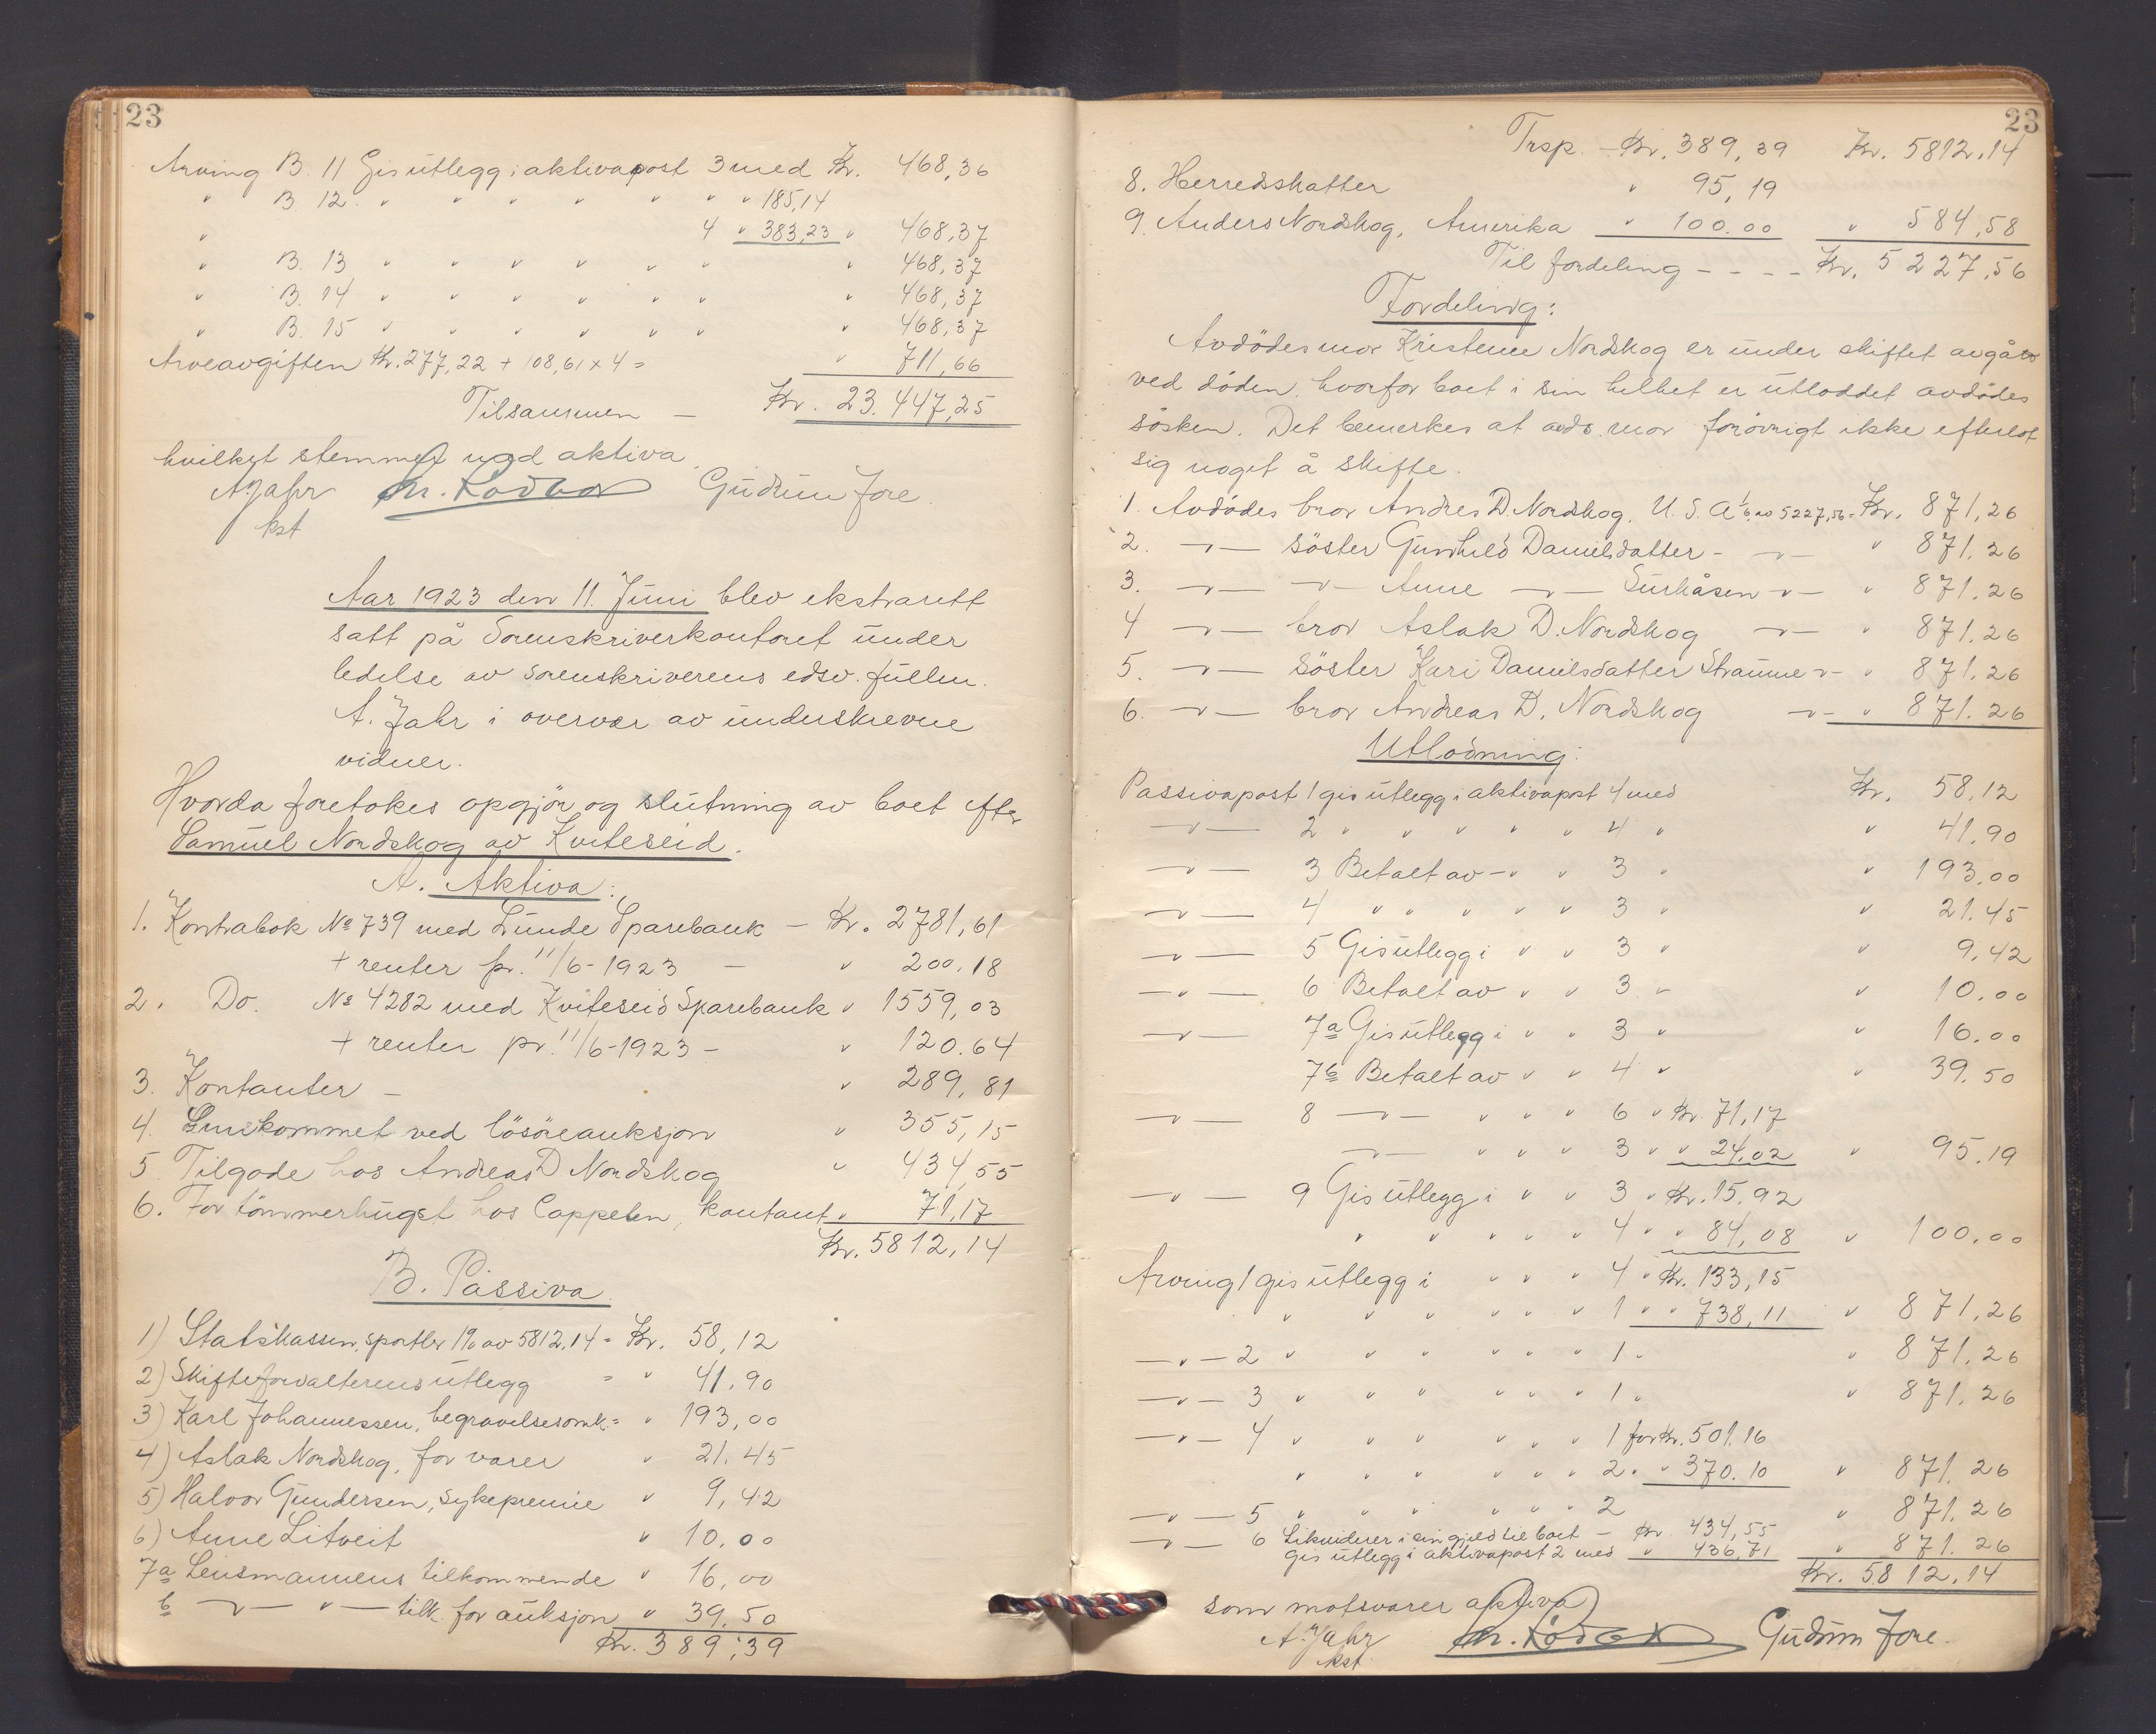 23
Arving B. 11 Gis utlegg i aktivapost 3 med Kr. 468,36
" B. 12. " " " " " " " 185,14
" 4 " 383,23 " 468,37
" B. 13 " " " " " " " 468,37
" B. 14 " " " " " " " 468,37
" B. 15 " " " " " " " 468,37
Arveavgiften Kr. 277,22 + 108,61 x 4 = " 711,66
Tilsammen — Kr. 23.447,25
hvilket stemmer med aktiva.
A. Jahr Gudrun Jore.
kst
Aar 1923 den 11. Juni blev ekstrarett
satt på Sorenskriverkontoret under
ledelse av sorenskriverens edsv. fullm.
A. Jahr i overvær av underskrevne
vidner.
Hvorda foretokes opgjör og slutning av boet efter
Samuel Nordskog av Kviteseid.
A. Aktiva:
1. Kontrabok No 739 med Lunde Sparebank — Kr. 2781,61
+ renter pr. 11/6-1923 — " 200.18
2. Do. No 4282 med Kviteseid Sparebank " 1559,03
+ renter pr. 11/6-1923 — " 120.64
3. Kontanter — " 289,81
4. Innkommet ved lösöreauksjon " 355,15
5 Tilgode hos Andreas D Nordskog " 434,55
6. For tömmerhugst hos Cappelen, kontant " 71,17
Kr. 5812,14
B. Passiva.
1) Statskassen, sportler 1% av 5812.14 = Kr. 58,12
2) Skifteforvalterens utlegg = " 41.90
3) Karl Johannessen, begravelsesomk. = " 193,00
4) Aslak Nordskog, for varer " 21.45
5) Halvor Gundersen, sykepremie " 9,42
6) Anne Litveit " 10,00
7a Lensmannens tilkommende " 16,00
b —"— " — tilk. for auksjon " 39.50
Kr. 389,39
23
Trsp. — Kr. 389,39 Kr. 5812,14
8. Herredskatter " 95,19
9. Anders Nordskog, Amerika " 100.00 " 584,58
Til fordeling - - - - Kr. 5227,56
Fordeling:
Avdödes mor Kristense Nordskog er under skiftet avgått
ved döden, hvorfor boet i sin helhet er utloddet avdödes
sösken. Det bemerkes at avds. mor forövrigt ikke efterlot
sig noget å skifte.
1. Avdödes bror Andres D. Nordskog, U.S.A 1/6 av 5227,56 = Kr. 871,26
2. —"— söster Gunhild Danielsdatter - —"— " 871.26
3. —"— —"— Anne —"— Surkåsen —"— " 871.26
4 —"— bror Aslak D. Nordskog —"— " 871.26
5. —"— söster Kari Danielsdatter Straume —"— " 871.26
6. —"— bror Andreas D. Nordskog —"— " 871.26
Utlodning:
Passivapost 1 gis utlegg i aktivapost 4 med Kr. 58,12
—"— 2 " " " " " 4 " " 41.90
—"— 3 Betalt av — " " 3 " " 193.00
—"— 4 " " " " " 3 " " 21.45
—"— 5 Gis utlegg i " " 3 " " 9,42
—"— 6 Betalt av " " 3 " " 10.00
—"— 7a Gis utlegg i " " 3 " " 16.00
7b Betalt av " " 4 " " 39.50
—"— 8 —"— " " " 6 " Kr. 71,17
—"— " " " 3 " " 24.02 " 95.19
—"— 9 Gis utlegg i " " 3 " Kr. 15.92
" " " " " 4 " " 84,08 " 100.00
Arving 1 gis utlegg i " " " 4 " Kr. 133,15
" " " " " " " 1 " " 738,11 " 871,26
—"— 2 " " " " " " 1 " " 871.26
—"— 3 " " " " " " 1 " " 871.26
—"— 4 " " " " " " 1 for Kr. 501.16
" " " " " " 2 " " 370.10 " 871.26
—"— 5 " " " " " " 2 " 871.26
—"— 6 Likviderer i sin gjeld til boet — Kr. 434,55
gis utlegg i aktivapost 2 med " 436,71 " 871.26
Kr. 5812,14
som motsvarer aktiva
A. Jahr Gudrun Jore.
kst.